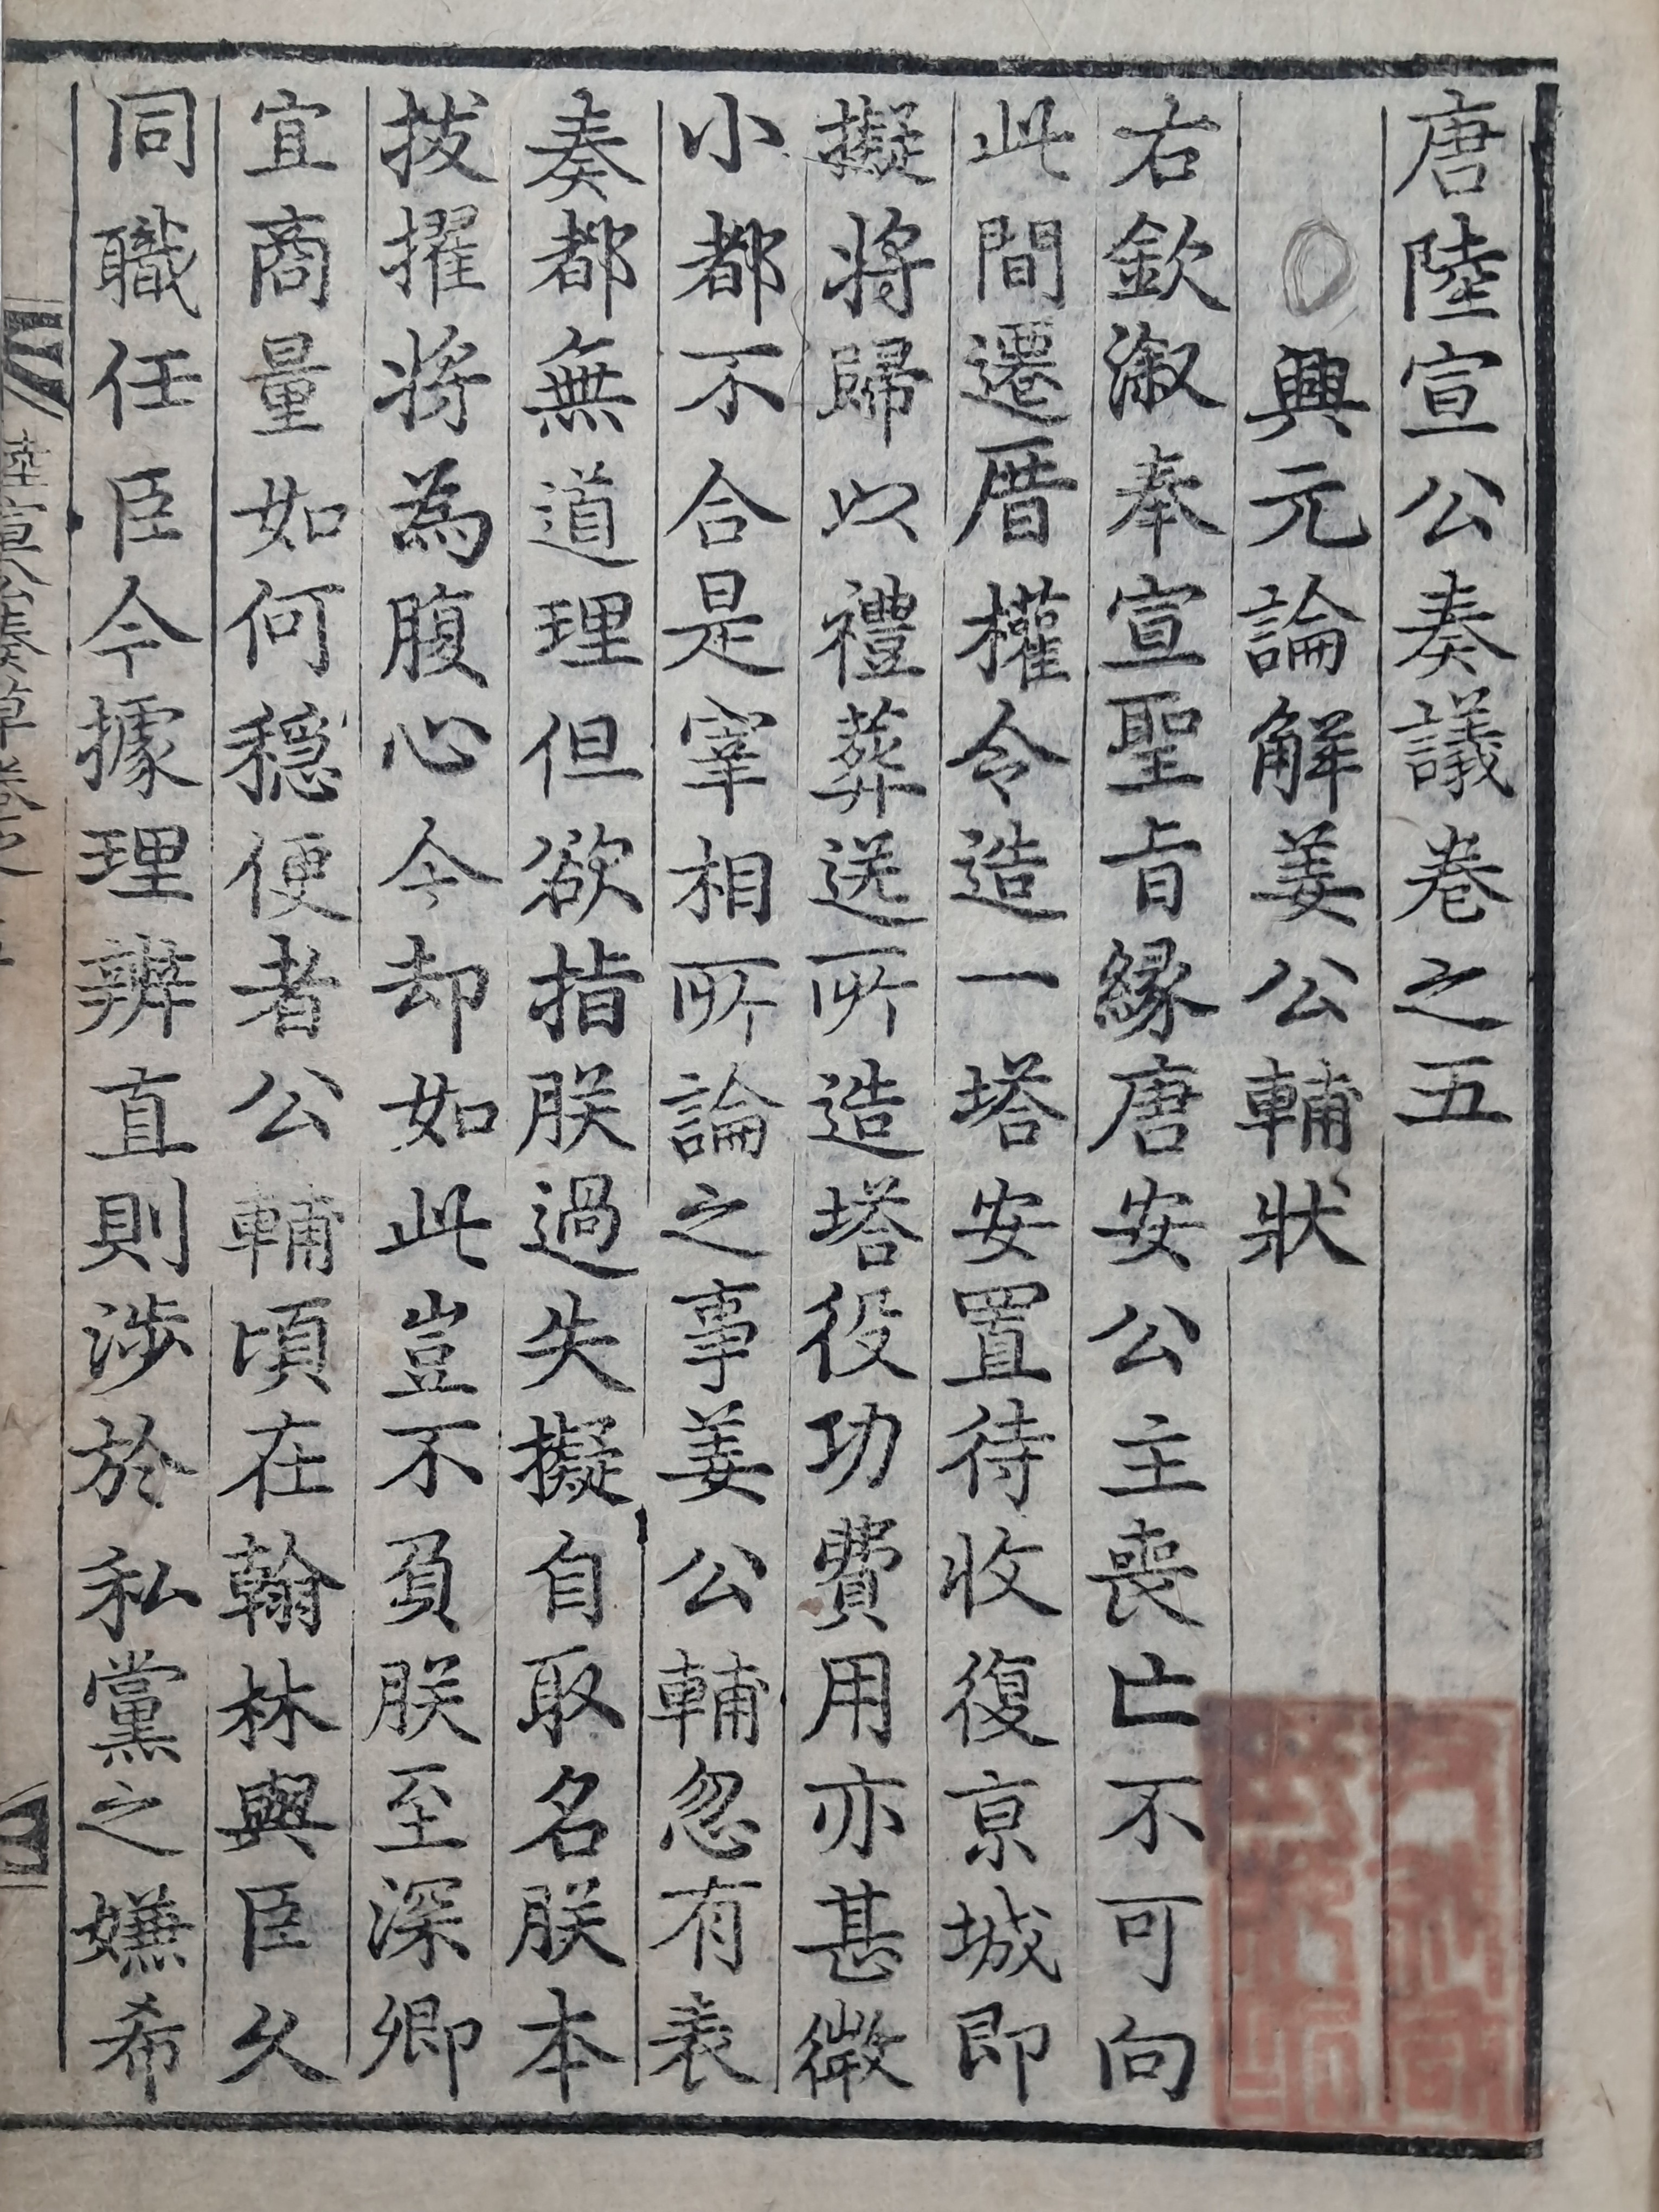 唐陸宣公奏議卷之五
興元論解姜公輔狀
右欽溆奉宣聖旨緣唐安公主喪亡不可向
此間遷厝權令造一塔安置待收復京城即
擬將歸以禮葬送所造塔役功費用亦甚微
小都不合是宰相所論之事姜公輔忽有表
奏都無道理但欲指朕過失擬自取名朕本
拔擢將為腹心今却如此豈不負朕至深卿
宜商量如何穩便者公輔頃在翰林與臣久
同職任臣今據理辨直則涉於私黨之嫌希
陸宣公奏草卷之五